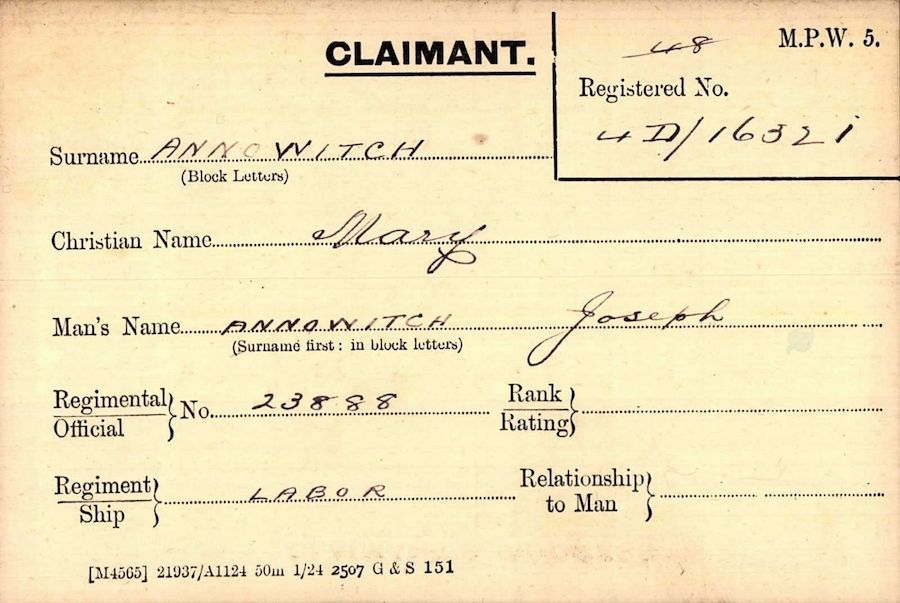 CLAIMANT.
48
M.P.W. 5.
Registered No.
4D/16321
Surname ANNOWITCH
(Block Letters)
Christian Name Mary
Man's Name ANNOWITCH Joseph
(Surname first: in block letters)
Regimental
Official
No. 23888
Rank
Rating
Regiment
Ship
LABOR
Relationship
to Man
[M4565] 21937/A1124 50m 1/24 2507 G & S 151